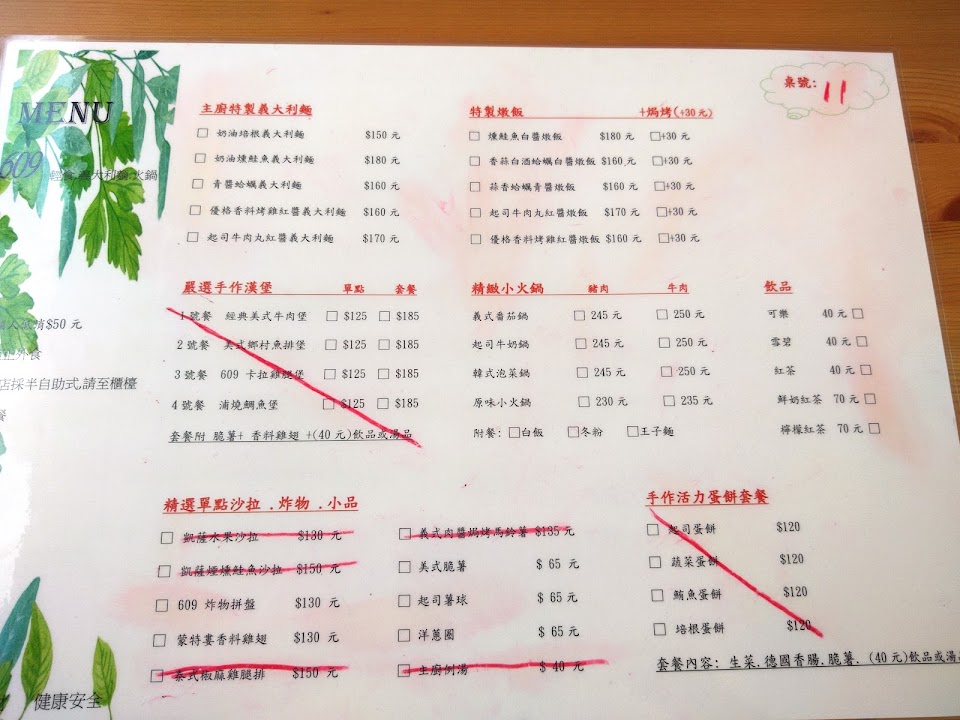 MENU
609 輕食.義大利麵.火鍋
桌號: 11
主廚特製義大利麵
奶油培根義大利麵 $150 元
奶油燻鮭魚義大利麵 $180 元
青醬蛤蠣義大利麵 $160 元
優格香料烤雞紅醬義大利麵 $160 元
起司牛肉丸紅醬義大利麵 $170 元
特製燉飯 +焗烤(+30元)
燻鮭魚白醬燉飯 $180 元 +30 元
香蒜白酒蛤蠣白醬燉飯 $160 元 +30 元
蒜香蛤蠣青醬燉飯 $160 元 +30 元
起司牛肉丸紅醬燉飯 $170 元 +30 元
優格香料烤雞紅醬燉飯 $160 元 +30 元
嚴選手作漢堡 單點 套餐
1 號餐 經典美式牛肉堡 $125 $185
2 號餐 美式鄉村魚排堡 $125 $185
3 號餐 609 卡拉雞腿堡 $125 $185
4 號餐 浦燒鯛魚堡 $125 $185
套餐附 脆薯+ 香料雞翅 +(40 元)飲品或湯品
精緻小火鍋 豬肉 牛肉
義式番茄鍋 245 元 250 元
起司牛奶鍋 245 元 250 元
韓式泡菜鍋 245 元 250 元
原味小火鍋 230 元 235 元
附餐: 白飯 冬粉 王子麵
飲品
可樂 40 元
雪碧 40 元
紅茶 40 元
鮮奶紅茶 70 元
檸檬紅茶 70 元
$50 元
外食
店採半自助式,請至櫃檯
餐
精選單點沙拉 . 炸物 . 小品
凱薩水果沙拉 $130 元
凱薩煙燻鮭魚沙拉 $150 元
609 炸物拼盤 $130 元
蒙特婁香料雞翅 $130 元
泰式椒麻雞腿排 $150 元
義式肉醬焗烤馬鈴薯 $135 元
美式脆薯 $ 65 元
起司薯球 $ 65 元
洋蔥圈 $ 65 元
主廚例湯 $ 40 元
手作活力蛋餅套餐
起司蛋餅 $120
蔬菜蛋餅 $120
鮪魚蛋餅 $120
培根蛋餅 $120
套餐內容: 生菜.德國香腸.脆薯. (40 元)飲品或湯品
健康安全